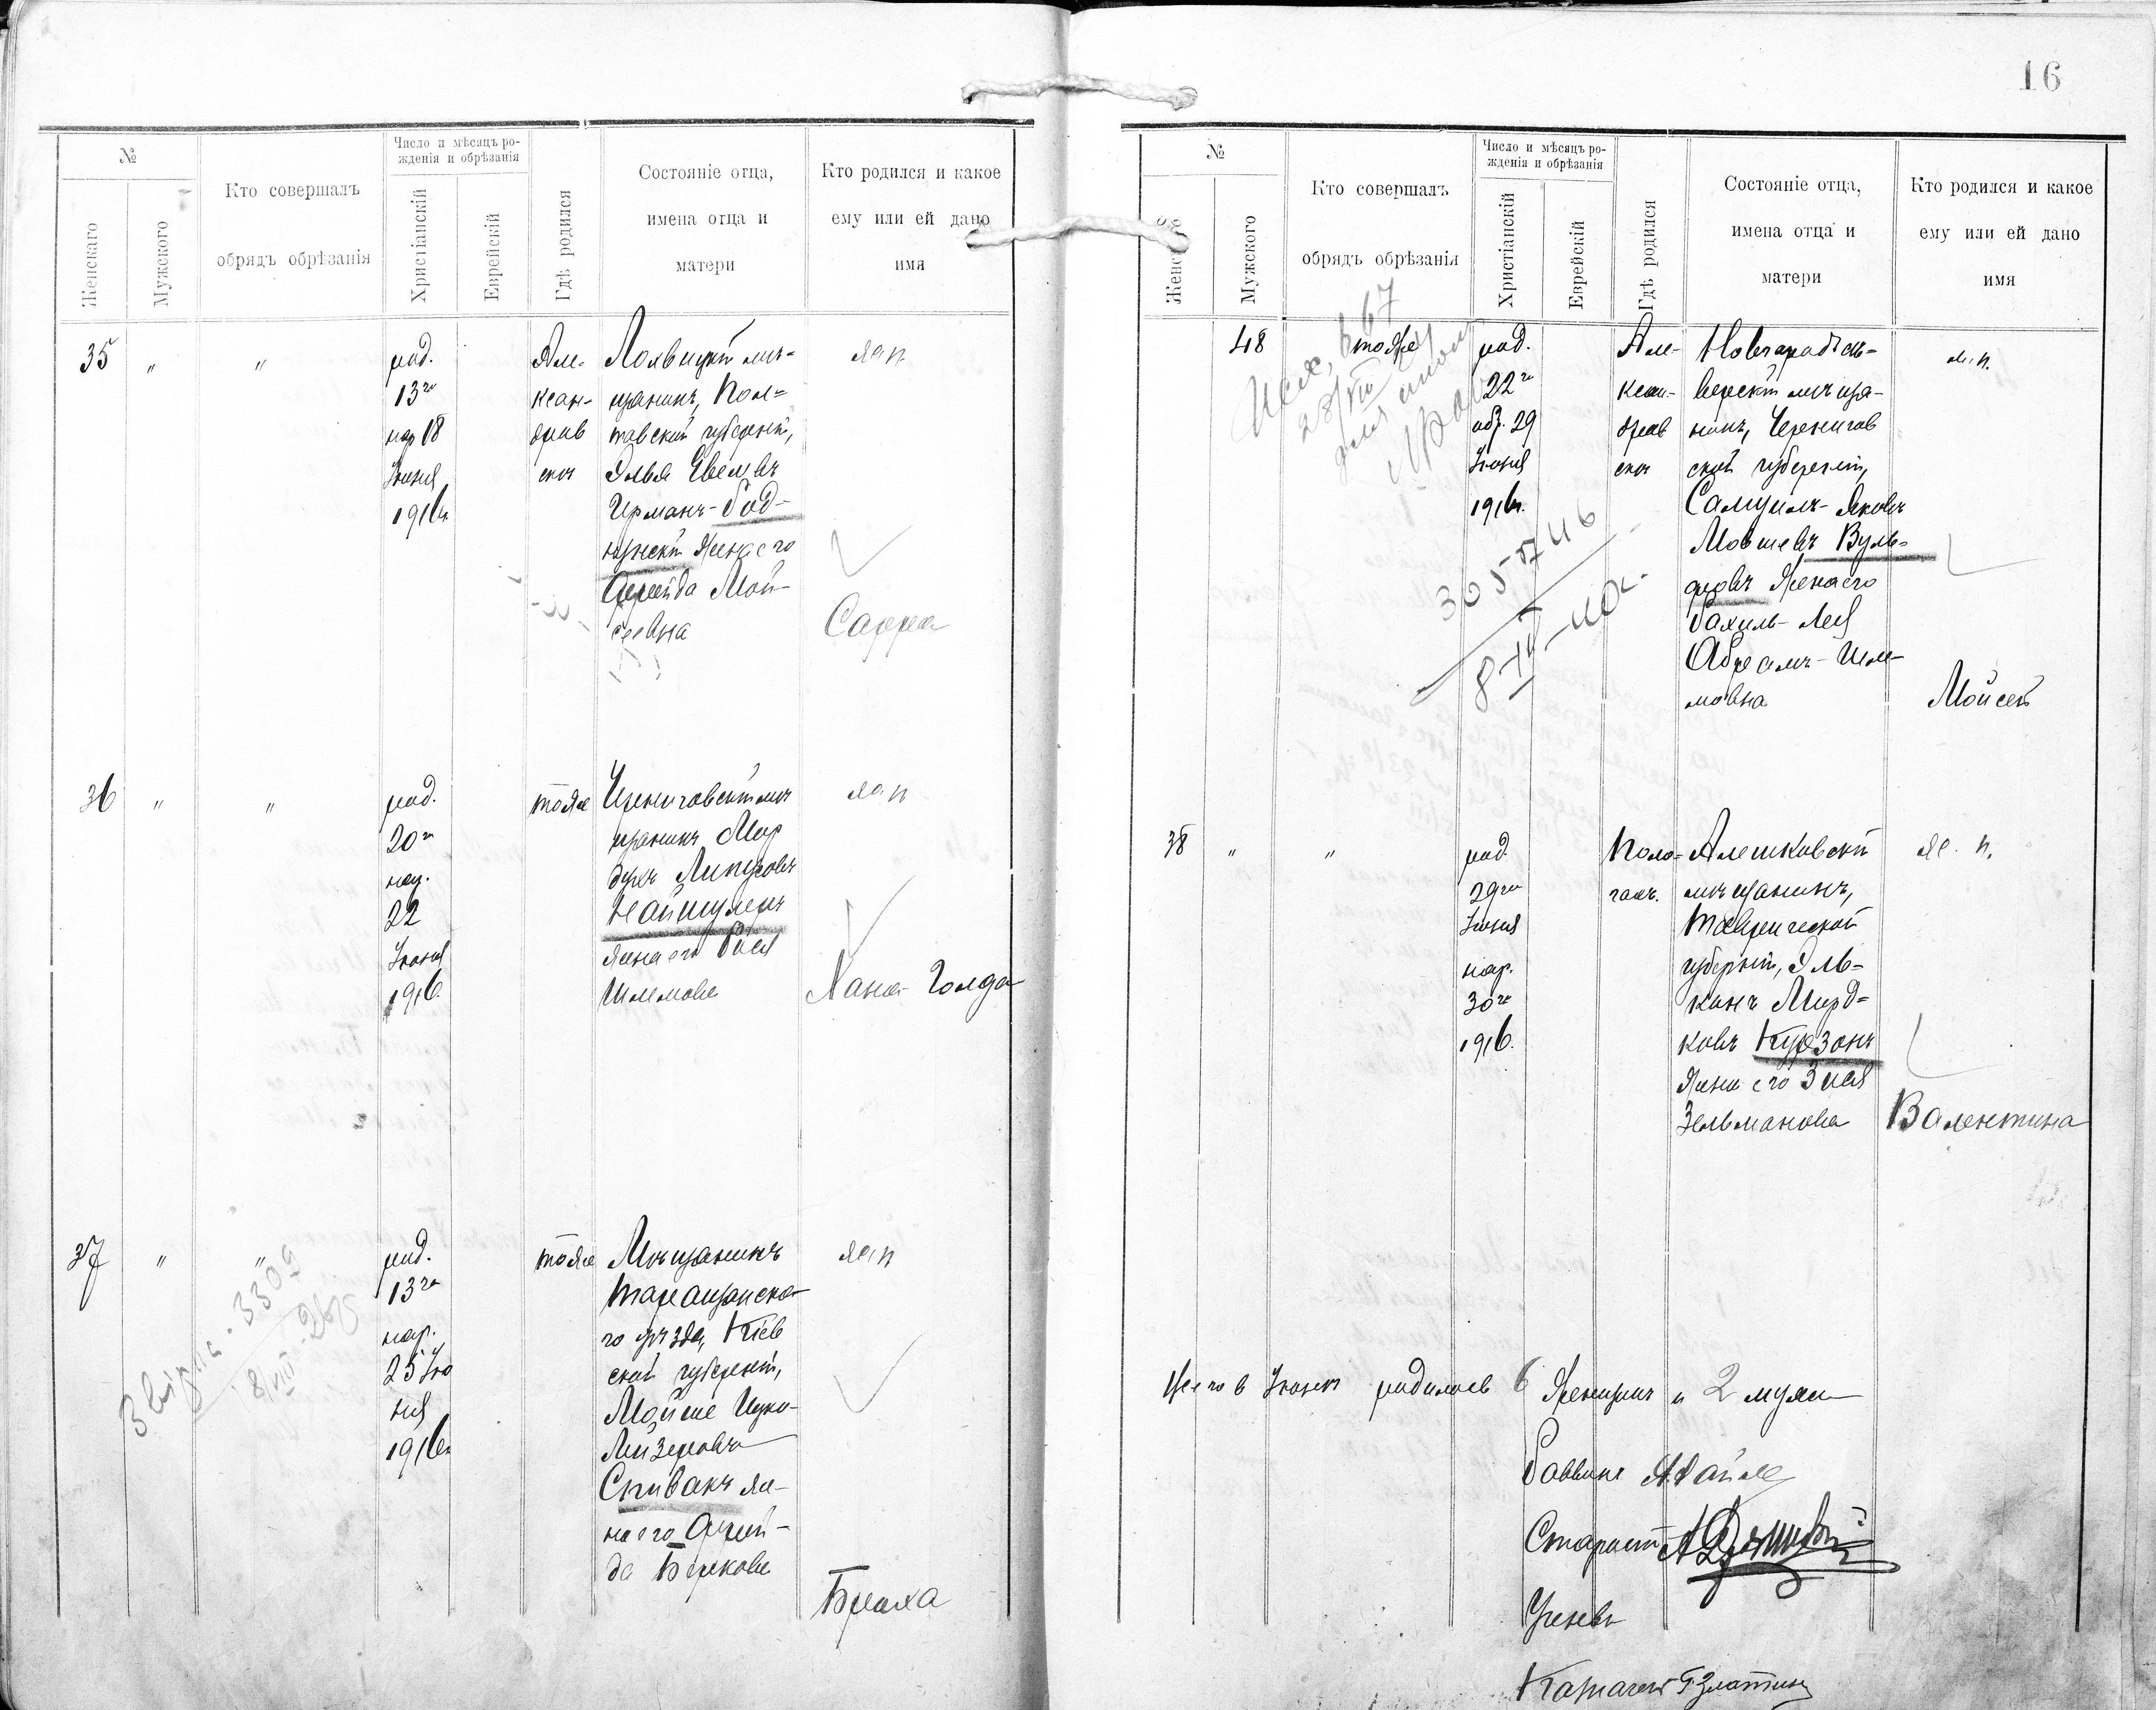 №
Женскаго
Мужского
Кто совершалъ
обрядъ обрѣзанія
Число и мѣсяцъ ро-
жденія и обрѣзанія
Христіанскій
Еврейскій
Гдѣ родился
Состояніе отца,
имена отца и
матери
Кто родился и какое
ему или ей дано
имя
35 " "
род.
13го
нар 18
Іюня
1916г.
Але-
ксан-
дров
ске
Лохвицкій мѣ-
щанинъ, Пол-
тавской губерніи,
Эльья
Ирманъ-Год-
жена его
Фрейда Мой-
сеевна
жен
Сарра
36 " "
род.
20го
нар.
22
Іюня
1916.
тоже
Черниговскій мѣ
щанинъ Мор
духъ
Найшулеръ
жена его Рися
Шлемова
жен
Хана-Голда
37 " "
род.
13го
нар.
25 Ію
ня
1916г
тоже
Мѣщанинъ
Таращанска-
го уѣзда, Кіев
ской губерніи,
Мойше Ицко-
Лейзеровъ
Спивакъ же-
на его Фрей-
да Беркова
жен
Браха
3309
8/VIII
16
№
Женскаго
Мужского
Кто совершалъ
обрядъ обрѣзанія
Число и мѣсяцъ ро-
жденія и обрѣзанія
Христіанскій
Еврейскій
Гдѣ родился
Состояніе отца,
имена отца и
матери
Кто родился и какое
ему или ей дано
имя
48
тоже
род.
22го
обр. 29
Іюня
1916г.
Але-
ксан-
дров
ске
Новгородъсѣ-
верскій мѣща-
нинъ, Чернигов
ской губерніи,
Самуилъ-Яковъ
Мовшевъ Вуль-
фовъ Жена его
Рахиль-Лея
Абрамъ-Шле-
мовна
м. п.
Мойсей
28/VII
38 " "
род.
29го
Іюня
нар.
30го
1916.
Поло-
гахъ.
Алешковскій
мѣщанинъ,
Таврической
губерніи, Эль-
канъ Морд-
ковъ Курзонъ
Жена его Зися
Зельманова
же. п.
Валентина
Всего в Іюнѣ родилось 6 Женщинъ и 2 мужч
Раввинъ
Староста
Ученый
Казначей Г Златинъ